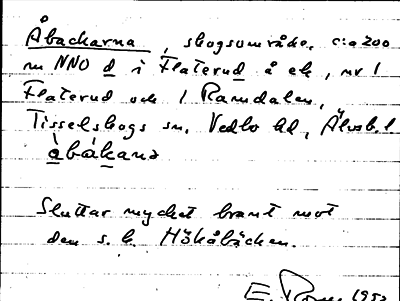 Åbackarna, skogsområde, c:a 200
m NNO d i Flaterud å ek, nr 1
Flaterud och 1 Ramdalen,
Tisselskogs sn, Vedbo hd, Älvsb. l
åbàkana
Sluttar mycket brant mot
den s. k. Hökåbäcken.
E. 1952